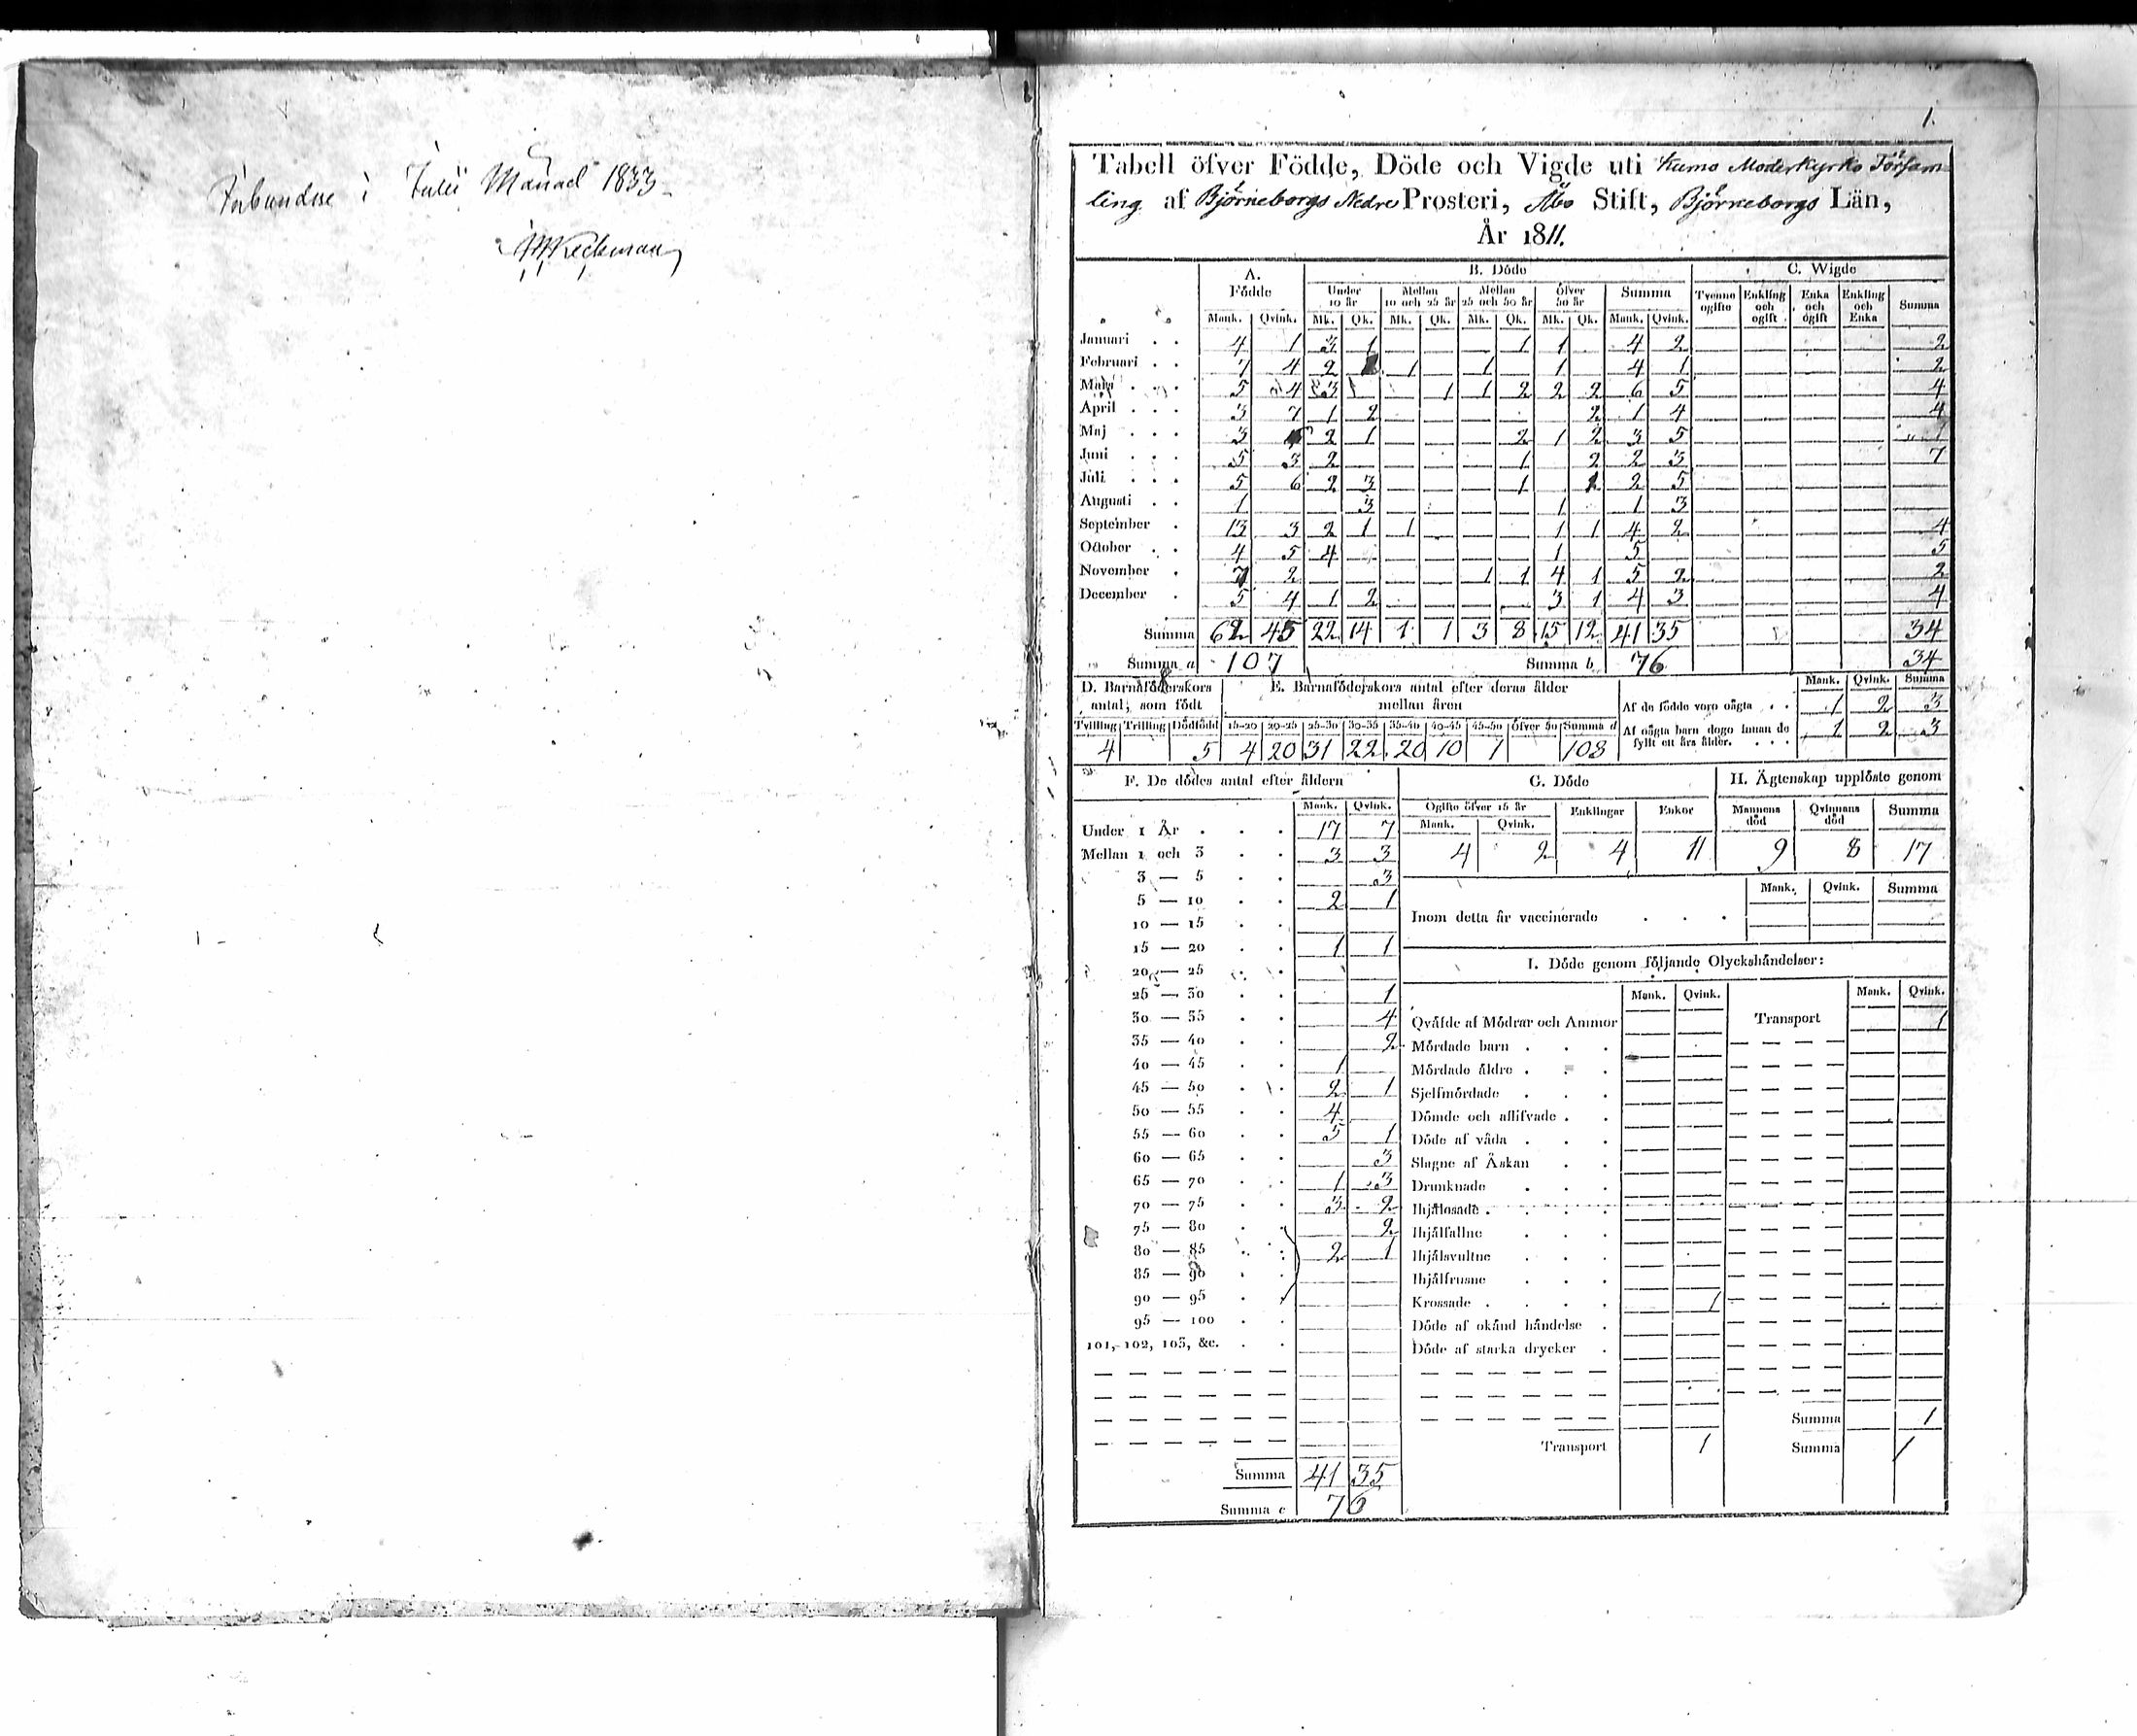 Inbundne i Julii Månad 1833
1.
Tabell öfver Födde, Döde och Vigde uti Kumo Moderkyrko Församling
af Björneborgs Nedre Prosteri, Åbo Stift, Björneborgs Län,
År 1811.
A. Födde B. Döde C. Wigde
Under 10 år Mellan 10 och 25 år Mellan 25 och 50 år Öfver 50 år Summa Tvenne ogifte Enkling och ogift Enka och ogift Enkling och Enka Summa
Mank. Qvink. Mk. Qk. Mk. Qk. Mk. Qk. Mk. Qk. Mank. Qvink.
Januari 4 1 3 1 1 1 4 2 2
Februari 7 4 2 1 1 1 4 1 2
Mars 5 4 3 1 1 2 2 2 6 5 4
April 3 7 1 2 2 1 4 4
Maj 3 2 1 2 1 2 3 5 1
Juni 5 3 2 1 2 2 3 7
Juli 5 6 2 3 1 1 2 5
Augusti 1 3 1 1 3
September 13 3 2 1 1 1 1 4 2 4
October 4 5 4 1 5 5
November 7 2 1 1 4 1 5 2 2
December 5 4 1 2 3 1 4 3 4
Summa 62 45 22 14 1 1 3 8 15 12 41 35 34
Summa a 107 Summa b 76 34
D. Barnaföderskors antal, som födt E. Barnaföderskors antal efter deras ålder mellan åren Mank. Qvink. Summa
Af de födde voro oägta 1 2 3
Tvilling Trilling Dödfödd 15-20 20-25 25-30 30-35 35-40 40-45 45-50 Öfver 50 Summa d
Af oägta barn dogo innan de fyllt ett års ålder. 1 2 3
4 5 4 20 31 22 20 10 1 108
F. De dödes antal efter åldern
Mank. Qvink.
Under 1 År 17 7
Mellan 1 och 3 3 3
3 — 5 3
5 — 10 2 1
10 — 15
15 — 20 1 1
20 — 25
25 — 30 1
30 — 35 4
35 — 40 2
40 — 45 1
45 — 50 2 1
50 — 55 4
55 — 60 5 1
60 — 65 3
65 — 70 1 3
70 — 75 3 2
75 — 80 2
80 — 85 2 1
85 — 90
90 — 95
95 — 100
101, 102, 103, &c.
Summa 41 35
Summa c 76
G. Döde H. Ägtenskap upplöste genom
Ogifte öfver 15 år Enklingar Enkor Mannens död Qvinnans död Summa
Mank. Qvink.
4 2 4 11 9 8 17
Mank. Qvink. Summa
Inom detta år vaccinerade
I. Döde genom följande Olyckshändelser:
Mank. Qvink. Mank. Qvink.
Qväfde af Mödrar och Ammor Transport 1
Mördade barn
Mördade äldre
Sjelfmördade
Dömde och aflifvade
Döde af våda
Slagne af Åskan
Drunknade
Ihjälosade
Ihjälfallne
Ihjälsvultne
Ihjälfrusne
Krossade 1
Döde af okänd händelse
Döde af starka drycker
Summa 1
Transport 1 Summa 1